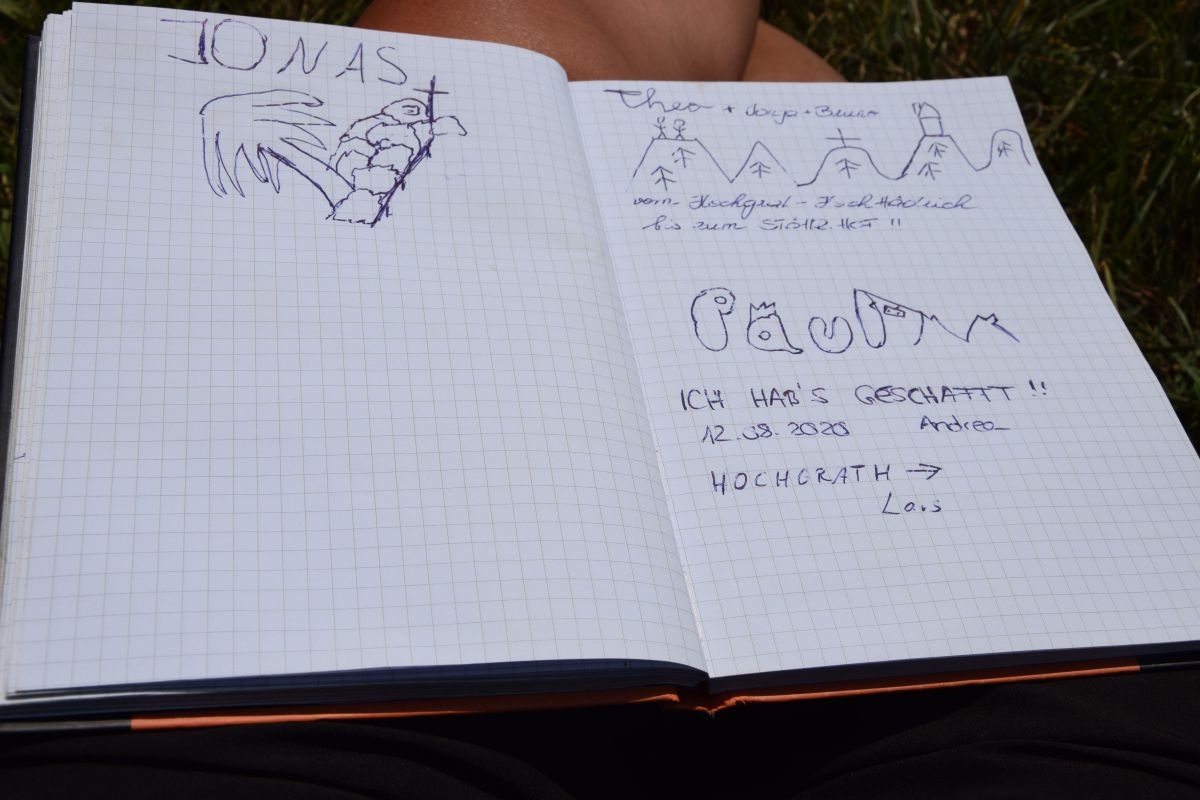 JONAS
Theo + Sonja + Bruno
vom Hochgrat - Hoch Hädrich
bis zum
Paul
ICH HAB'S GESCHAFFT !!
12.08.2020 Andrea
HOCHGRATH →
Lars